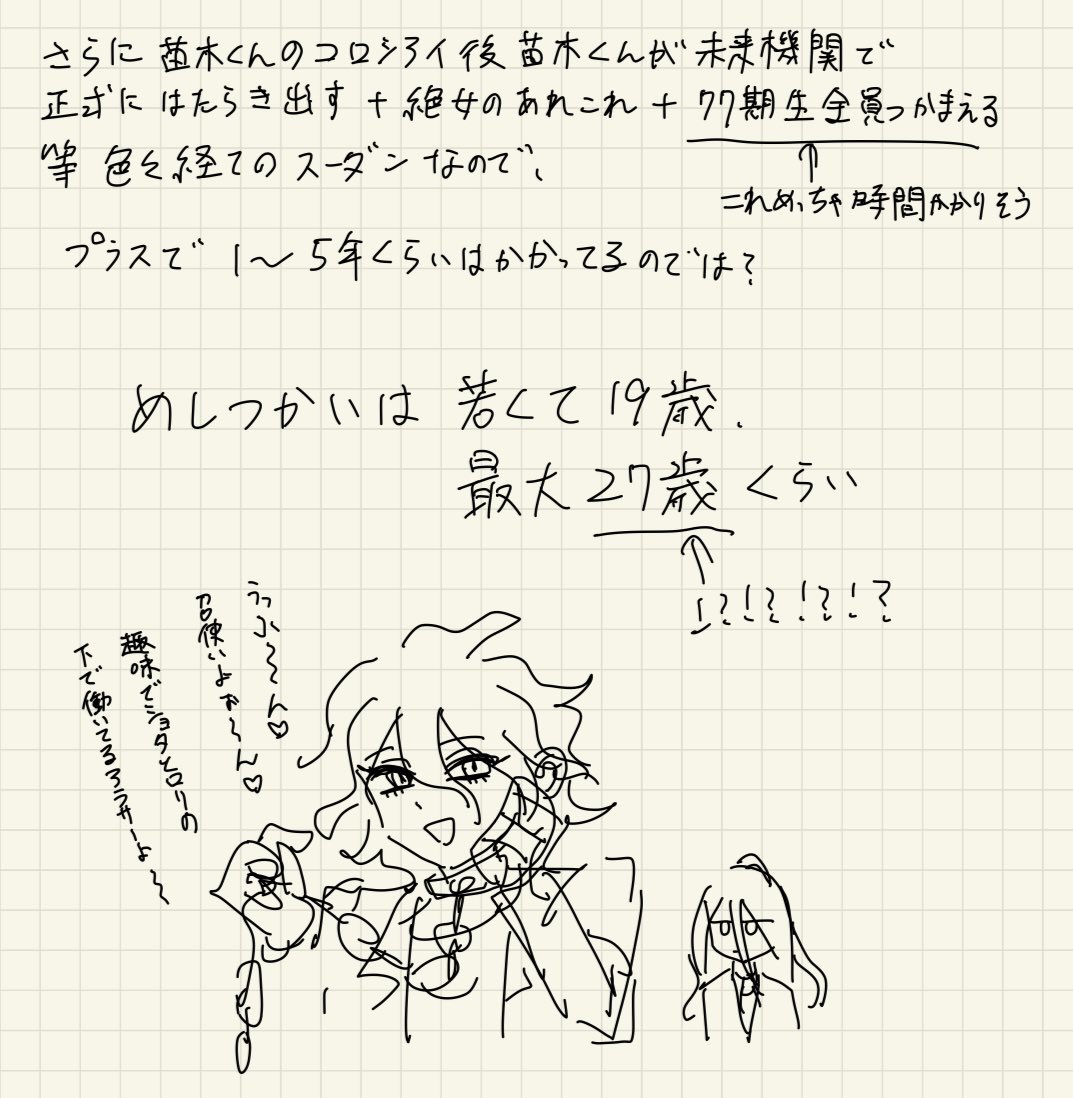 さらに苗木くんのコロシアイ後苗木くんが未来機関で
正式にはたらき出す+絶女のあれこれ+77期生全員つかまえる
等 色々経てのスーダンなので、
↑
これめっちゃ時間かかりそう
プラスで1〜5年くらいはかかってるのでは?
めしつかいは 若くて19歳.
最大27歳くらい
↑
!?!?!?!?
うっふ〜〜ん♡
召使いよぉ〜ん♡
趣味でショタとロリの
下で働いてるアラサーよ〜